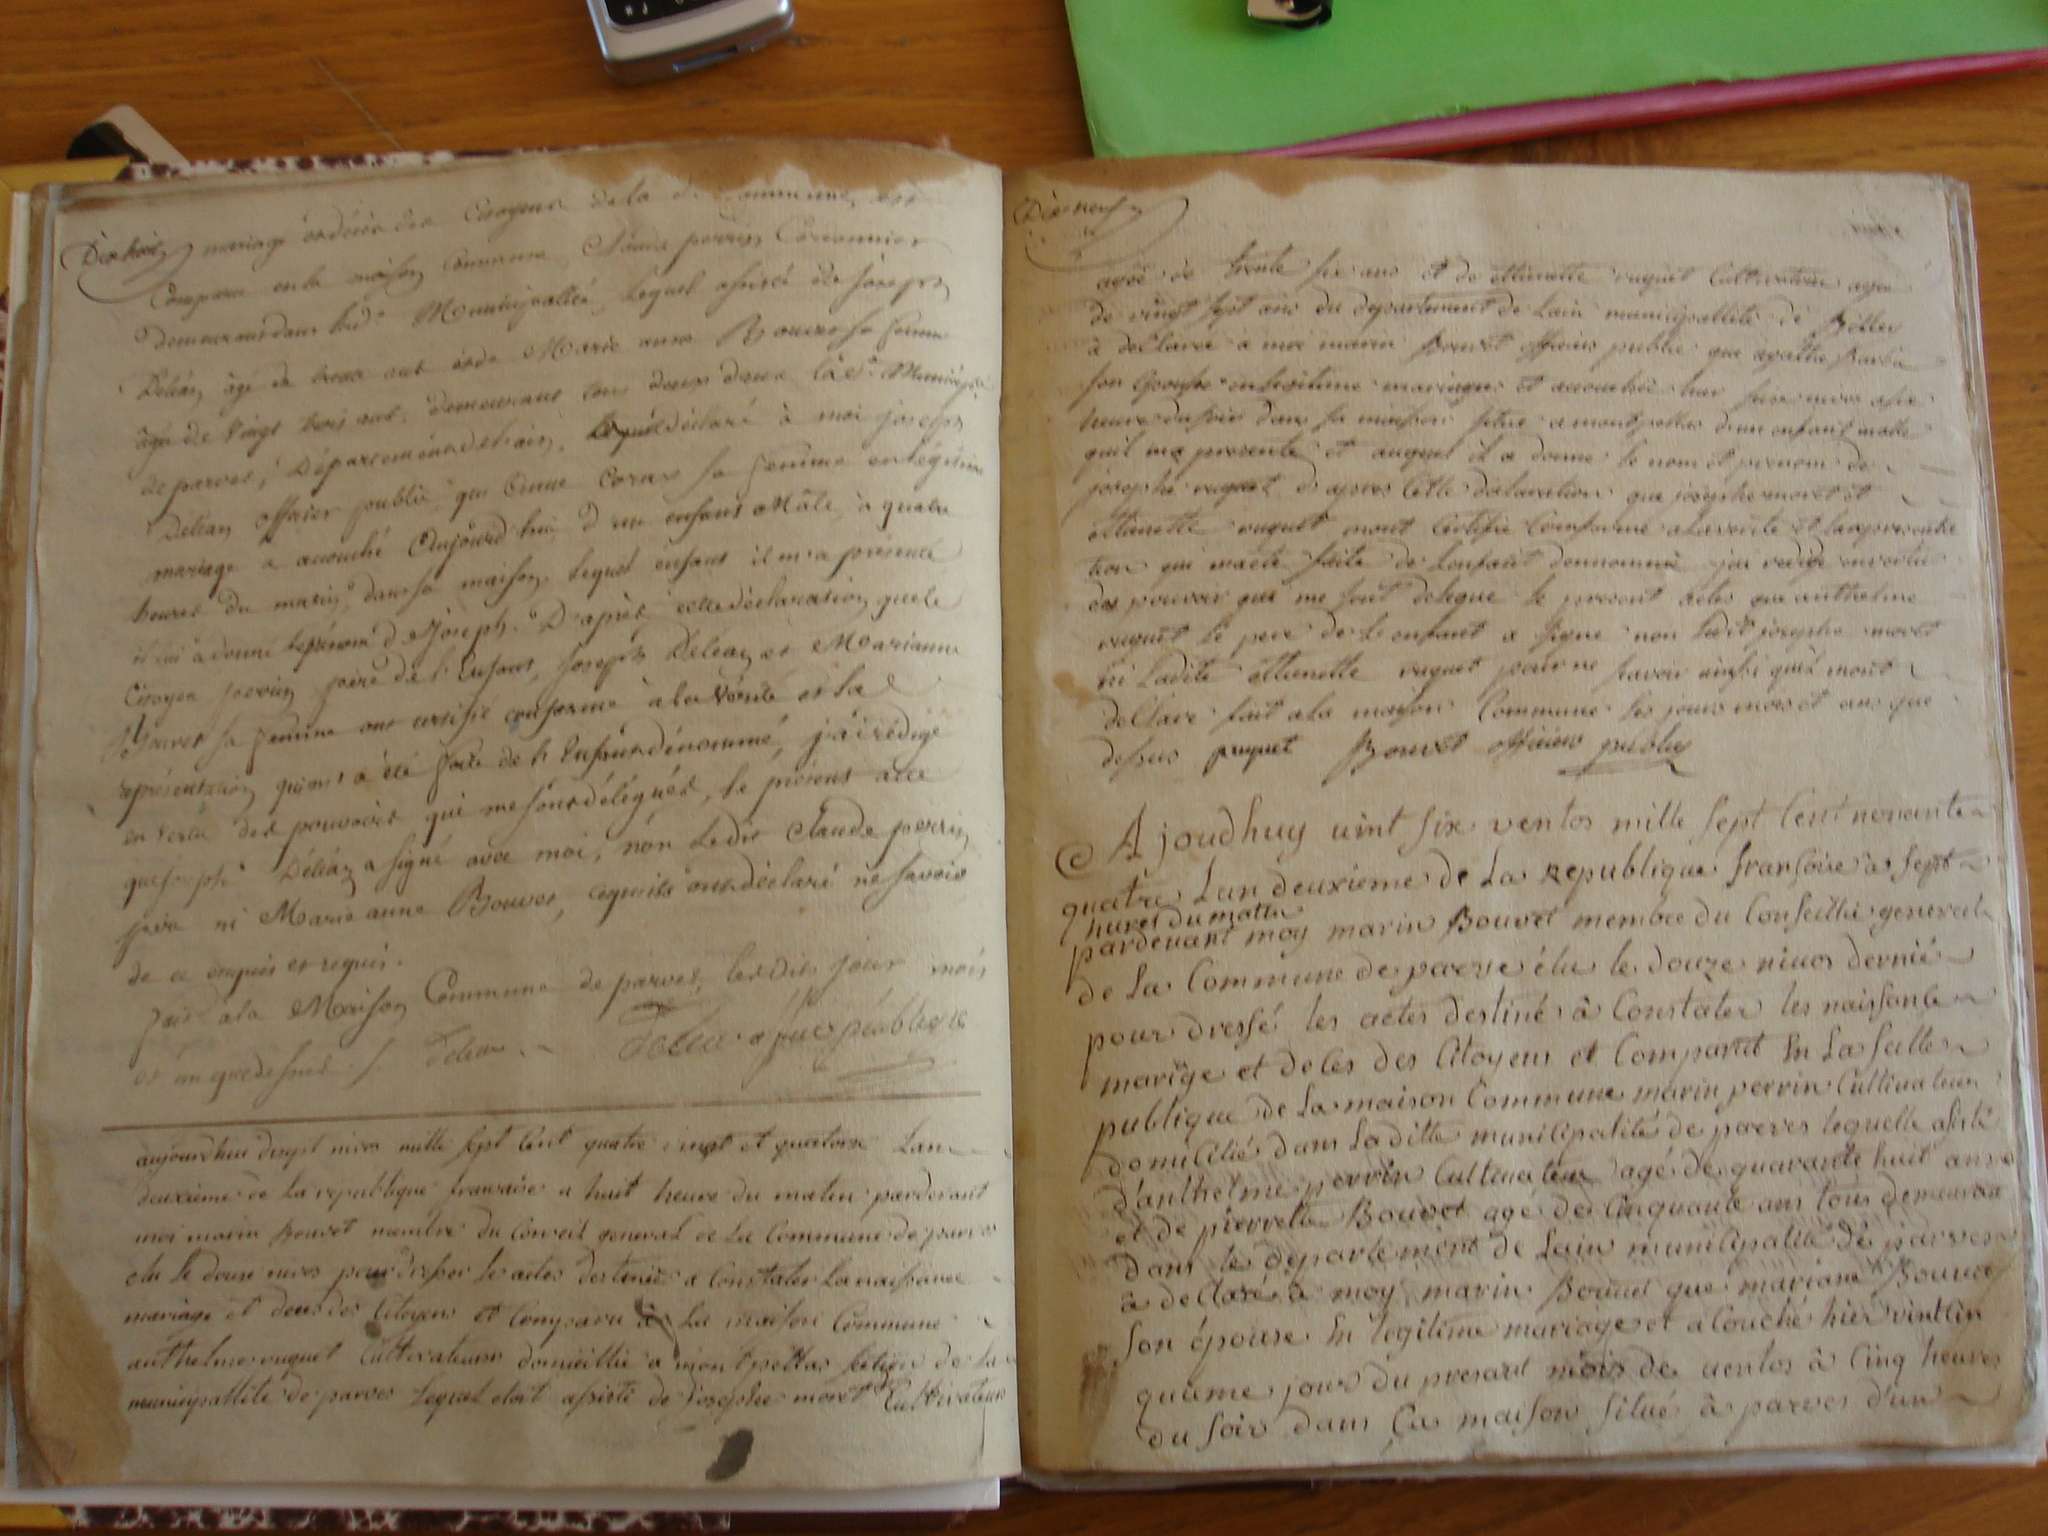 Dix huit
mariage et décès des Citoyens de la d. Commune, est
Comparu en la maison Commune Claude perrin Cordonnier
demeurant dans lad.e Municipalité, lequel assisté de joseph
Déléaz âgé de trente ans et de Marie anne Bouvet sa femme
âgée de vingt trois ans. demeurant tous deux dans la d.e Municip.té
de parves, Département de l'ain, déclaré à moi joseph
Déléaz officier public que Corar sa femme en légitime
mariage a accouché aujourd'hui d'un enfant Mâle, à quatre
heures du matin, dans sa maison, lequel enfant il m'a présenté
il lui a donné le prénom de Joseph. D'après cette déclaration que le
Citoyen perrin père de l'Enfant, joseph Déléaz et Marianne
Bouvet sa femme ont certifié conforme à la vérité et la
représentation qui m'a été faite de l'Enfant dénommé, j'ai rédigé
en vertu des pouvoirs qui me sont délégués, le présent acte
que joseph Déléaz a signé avec moi, non Ledit Claude perrin
père ni Marie anne Bouvet, ce qu'ils ont déclaré ne savoir
de ce enquis et requis.
fait a la Maison Commune de parves, lesdits jour mois
et an que dessus. J. Deleaz Deleaz publique
aujourdhui disept nivos mille sept Cent quatre vingt et quatorze Lan
deuxieme de la republique francaise a huit heure du matin pardevant
moi marin Bouvet membre du Conseil general de La Commune de parves
elu le douse nivos pour dresser les actes destinés a Constater La naissance
mariage et deces des Citoyens et Comparu à La maison Commune
anthelme ruquet Cultivateur domicillié a montpellas section de La
municipallité de parves Lequel etoit assisté de Josephe moret Cultivateur
Dix neuf
agée de trente six ans et de ettienette ruquet Cultivateur agée
de vingt sept ans du departement de Lain municipallité de
a declaré a moi marin Bouvet officier public que agatthe
son epouse en legitime mariage et accouchée hier seize nivos
heure du soir dans sa maison situé a montpellas d'un enfant malle
quil ma presenté et auquel il a donné le nom et prenom de
josephe ruquet d'apres Cette declaration que josephe moret et
ettienette ruquet mont Certifié Conforme a La verité et la representa
tion qui ma eté faite de Lenfant denommé jai redigé en vertu
des pouvoir qui me sont delegué le present actes que anthelme
ruquet le pere de Lenfant a signé non ledit josephe moret
ni Ladite ettienette ruquet pour ne savoir ainsi quil mont
declaré fait a La maison Commune les jours mois et ans que
dessus ruquet Bouvet officier public
Ajoudhuy uint six ventos mille sept Cent nonante
quatre Lan deuxieme de La republique francoise a sept
hures du matin
pardevant moy marin Bouvet membre du Conseille general
de La Commune de parve élu le douze nivos dernié
pour dressé les actes destiné à Constater les naissance
marige et deces des Citoyens et Comparut En La salle
publique de La maison Commune marin perrin Cultivateur
domicilié dans Laditte municipalité de parves lequelle assisté
d'anthelme perrin Cultivateur agé de quarante huit ans
et de pierrette Bouvet agé de Cinquante ans tous demeurant
dans le departement de Lain municipalité de parves
a declaré à moy marin Bouvet que mariane Bouvet
son épouse En legitime mariage et acouché hier vintcin
quieme jour du present mois de ventos à Cinq heures
du soir dans Ça maison situé à parves d'un